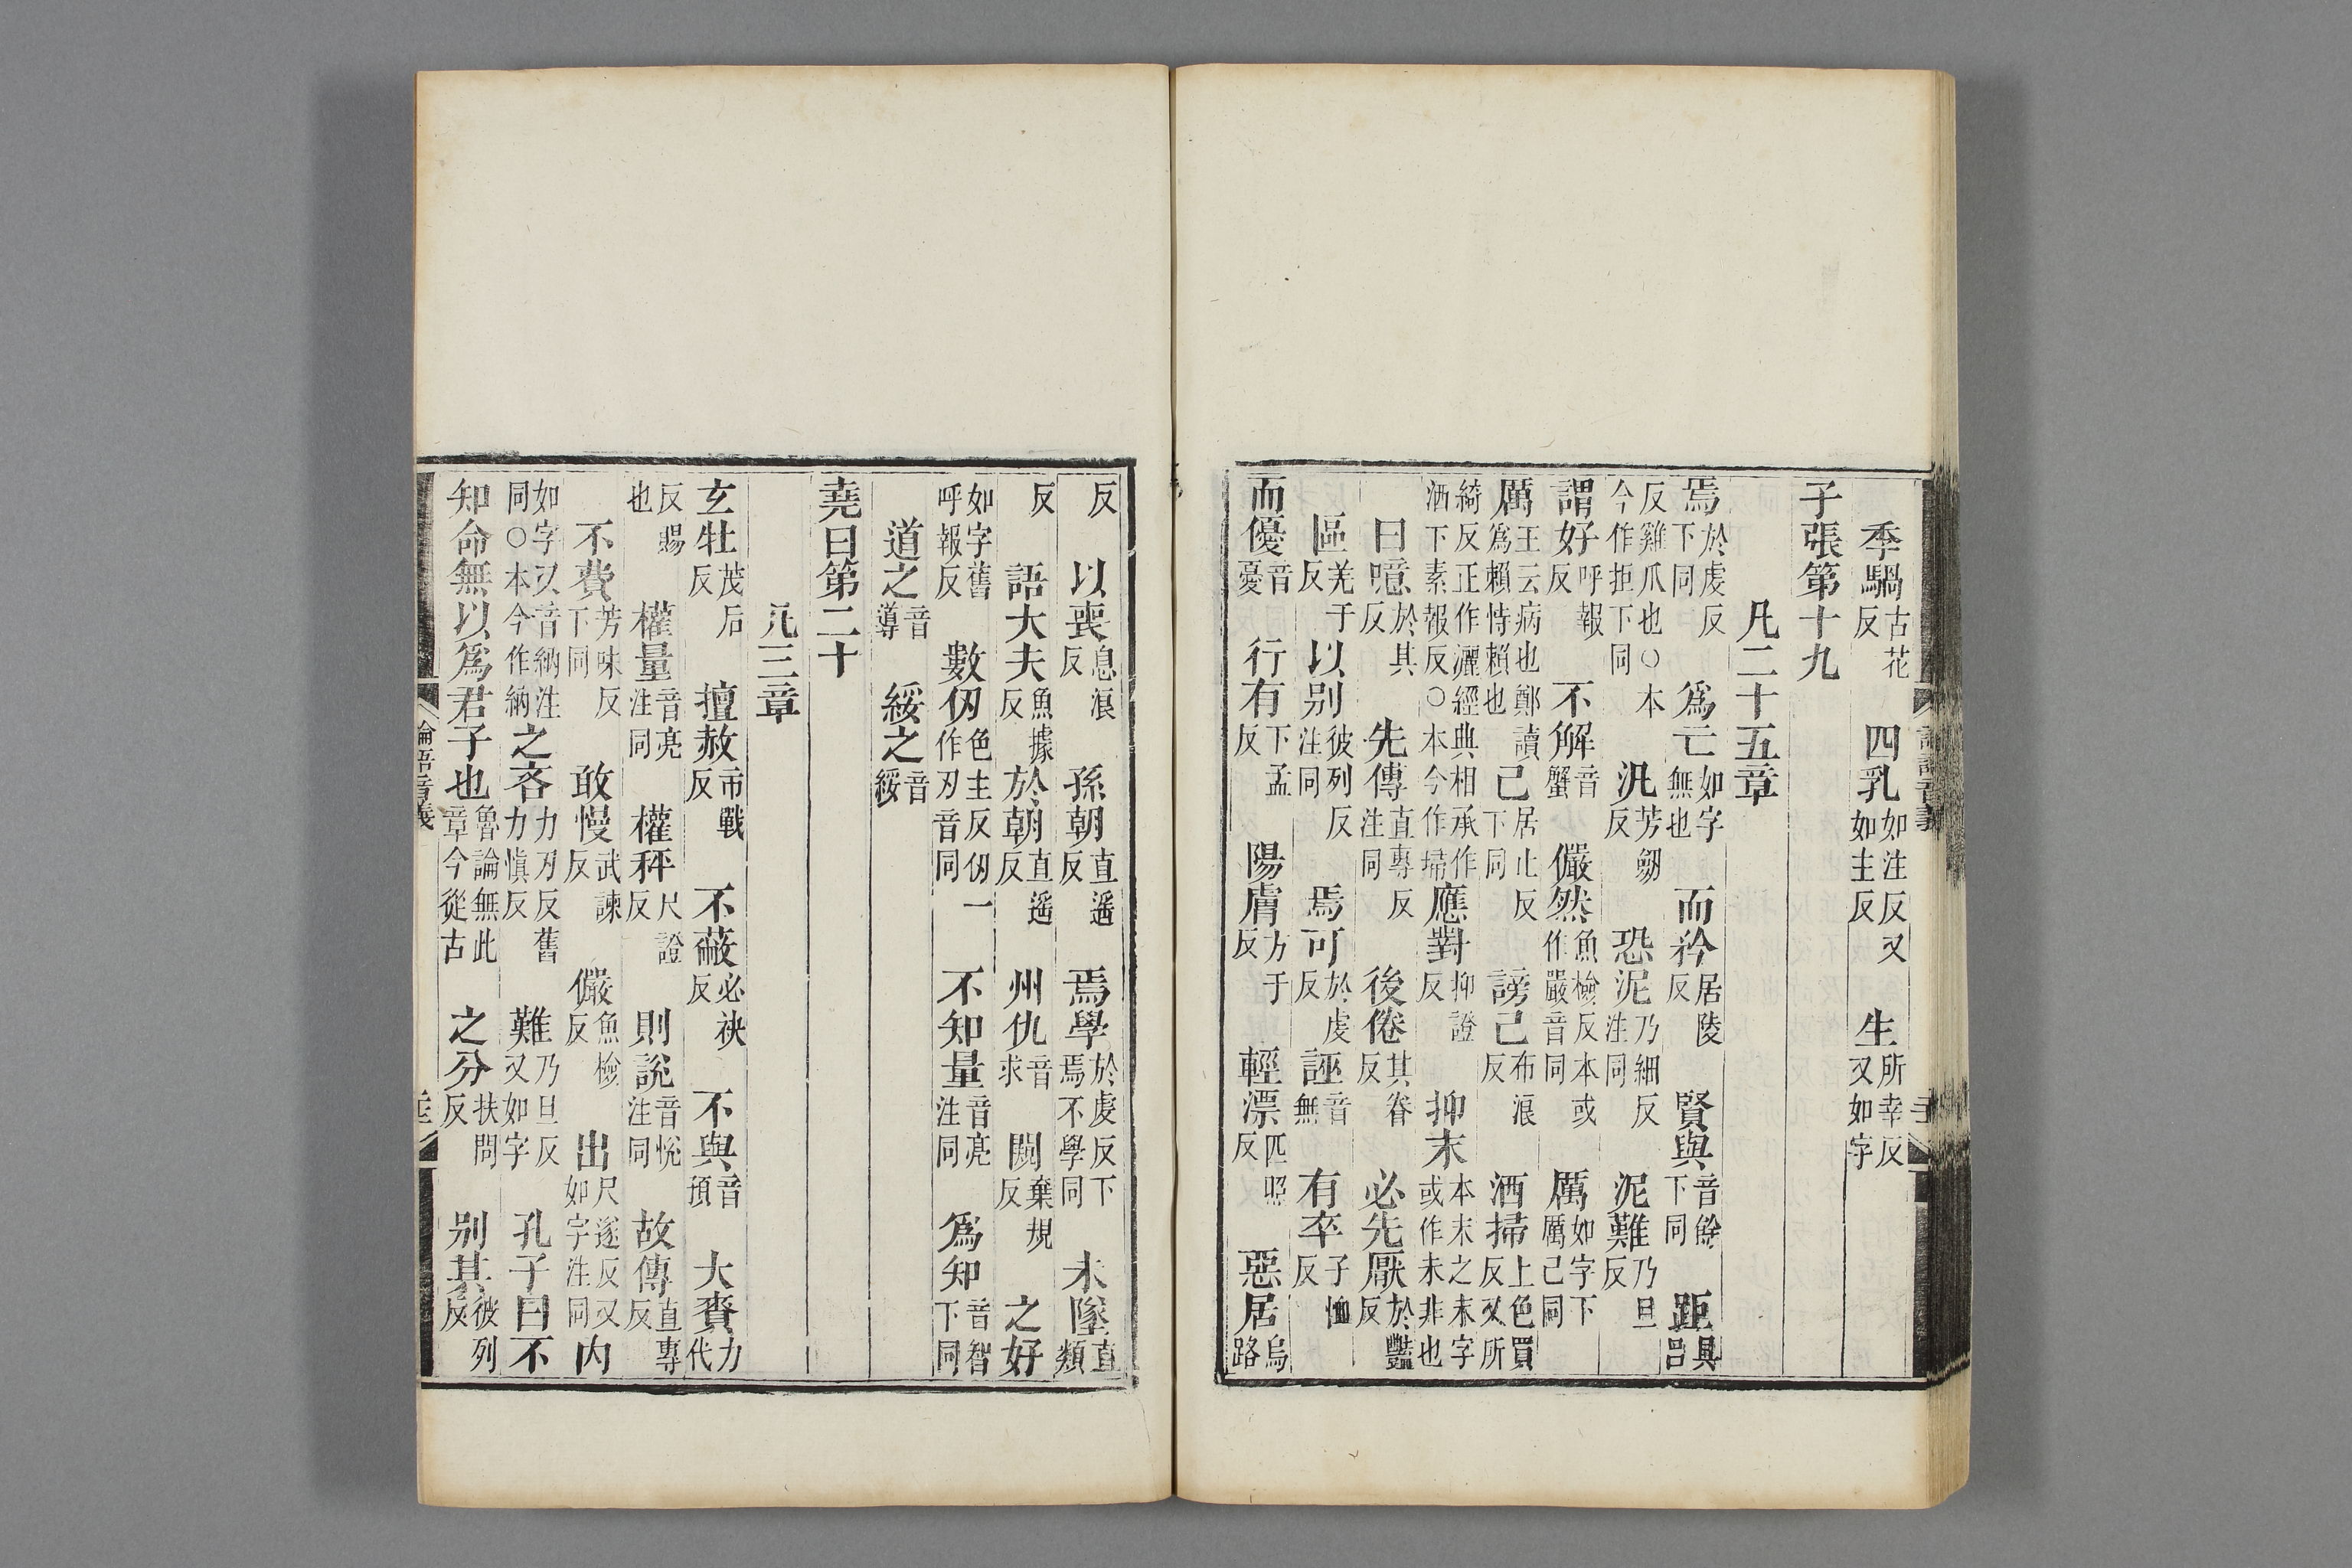 季騧古花反　四乳如注反又如主反　生所幸反又如字
子張第十九
凡二十五章
焉於虔反下同　爲亡如字無也　而矜居陵反　賢與音餘下同　距具呂
反雞爪也○本今作拒下同　汎芳劒反　恐泥乃細反注同　泥難乃旦反
謂好呼報反　不解音蟹　儼然魚檢反本或作嚴音同　厲如字下厲己同
厲王云病也鄭讀爲賴恃賴也　己居止反下同　謗己布浪反　洒掃上色買反又所
綺反正作灑經典相承作洒下素報反○本今作埽　應對抑證反　抑末本末之末字或作未非也
曰噫於其反　先傳直專反注同　後倦其眷反　必先厭於豔反
區羌于反　以别彼列反注同　焉可於虔反　誣音無　有卒子恤反
而優音憂　行有下孟反　陽膚方于反　輕漂匹照反　惡居烏路
反　以喪息浪反　孫朝直遥反　焉學於虔反下焉不學同　未墜直類
反　語大夫魚據反　於朝直遥反　州仇音求　闚棄規反　之好
如字舊呼報反　數仞色主反仞一作刃音同　不知量音亮注同　爲知音智下同
道之音導　綏之音綏
堯曰第二十
凡三章
玄牡茂后反　擅赦市戰反　不蔽必袂反　不與音預　大賚力代
反賜也　權量音亮注同　權秤尺證反　則説音悦注同　故傳直專反
不費芳味反下同　敢慢武諫反　儼魚檢反　出尺遂反又如字注同　内
如字又音納注同○本今作納　之吝力刃反舊力慎反　難乃旦反又如字　孔子曰不
知命無以爲君子也魯論無此章今從古　之分扶問反　别其彼列反
論語音義